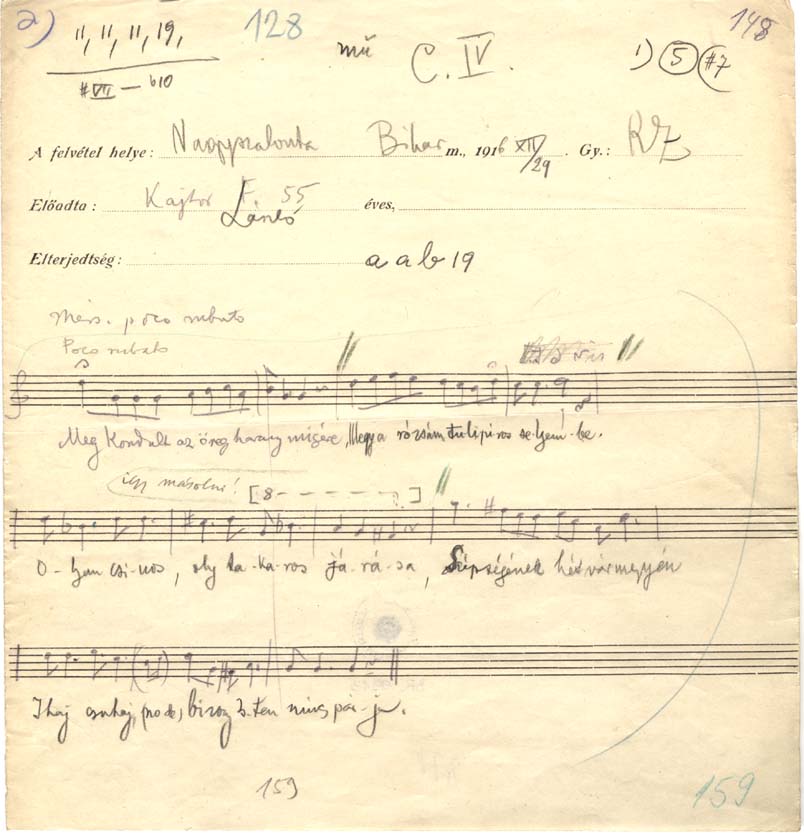 2) 11, 11, 11, 19, 128 mű C. IV. 1) 5 #7 148
#VII — b10
A felvétel helye: Nagyszalonta Bihar m., 1916 XII/29. Gy.: KZ
Előadta: Kajtor F. 55 éves,
László
Elterjedtség: a a b 19
Mérs. poco rubato
Poco rubato
Meg Kondult az öreg harang misére, Megy a rózsám tulipiros se-lyem-be.
így másolni! [8- - - - - -]
O-lyan csi-nos, oly ta-ka-ros já-rá-sa, Szépségének hét vármegyén
Ihaj csuhaj, bizoz Is-ten nincs pár-ja.
159 159